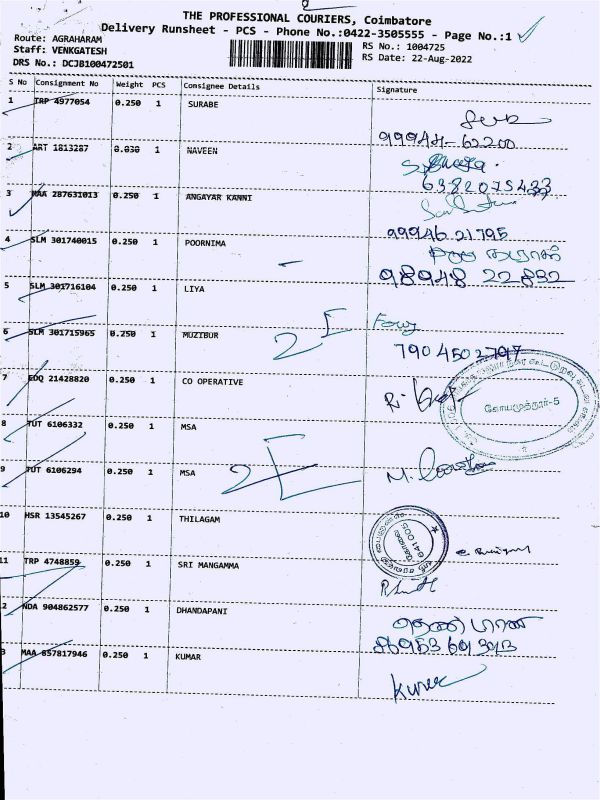 THE PROFESSIONAL COURIERS, Coimbatore
Delivery Runsheet - PCS - Phone No.:0422-3505555 - Page No.:1
Route: AGRAHARAM
RS No.: 1004725
Staff: VENKGATESH
RS Date: 22-Aug-2022
DRS No.: DCJB100472501
S No Consignment No Weight PCS Consignee Details Signature
1 TRP 4977054 0.250 1 SURABE
99944-62200
2 ART 1813287 0.030 1 NAVEEN
6382075433
3 MAA 287631013 0.250 1 ANGAYAR KANNI
99946 21795
4 SLM 301740015 0.250 1 POORNIMA
98948 22832
5 SLM 301716104 0.250 1 LIYA
6 SLM 301715965 0.250 1 MUZIBUR 2E
790 4502797
7 EDQ 21428820 0.250 1 CO OPERATIVE
கோயமுத்தூர்-5
8 TUT 6106332 0.250 1 MSA
2E
9 TUT 6106294 0.250 1 MSA
10 HSR 13545267 0.250 1 THILAGAM
641 005
11 TRP 4748859 0.250 1 SRI MANGAMMA
12 NDA 904862577 0.250 1 DHANDAPANI
3 MAA 857817946 0.250 1 KUMAR
Kumar